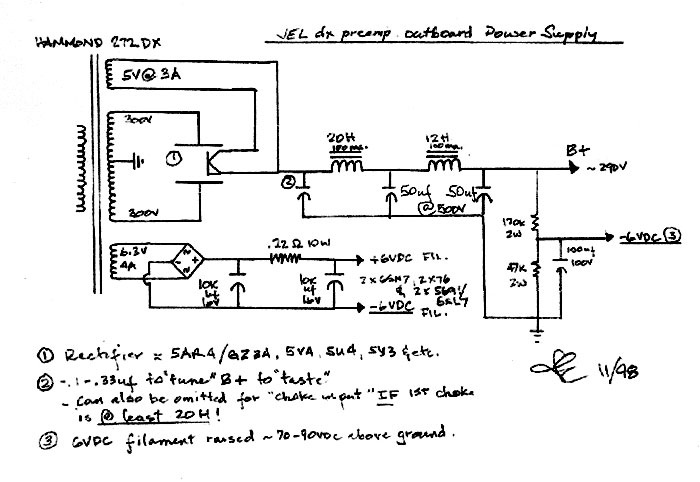 HAMMOND 272DX
JEL dx preamp outboard Power Supply
5V @ 3A
300V
20H
100ma.
12H
100ma.
B+
~ 290V
①
②
50uf
50uf
@ 500V
300V
170K
2W
-6VDC ③
47K
2W
100uf
100V
6.3V
4A
.22Ω 10W
+6VDC FIL.
10K
uf
16V
10K
uf
16V
2x6SN7, 2x76
& 2x5691/
6SL7
-6VDC FIL.
① Rectifier = 5AR4/GZ34, 5V4, 5U4, 5Y3 &etc.
② -.1-.33uf to "tune" B+ to "taste"
- can also be omitted for "choke input" IF 1ST choke
is @ least 20H!
③ 6VDC filament raised ~70-90VDC above ground.
11/98